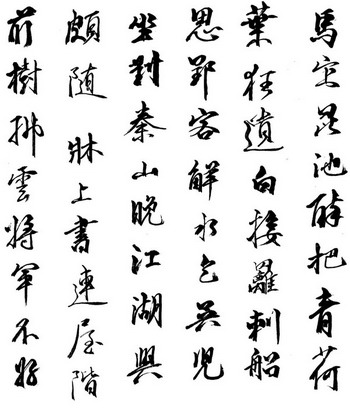 馬定昆池醉把青荷
葉狂遺白接䍦刺船
思郢客解水乞吳兒
坐對秦山晚江湖興
頗隨牀上書連屋階
前樹拂雲將軍不好